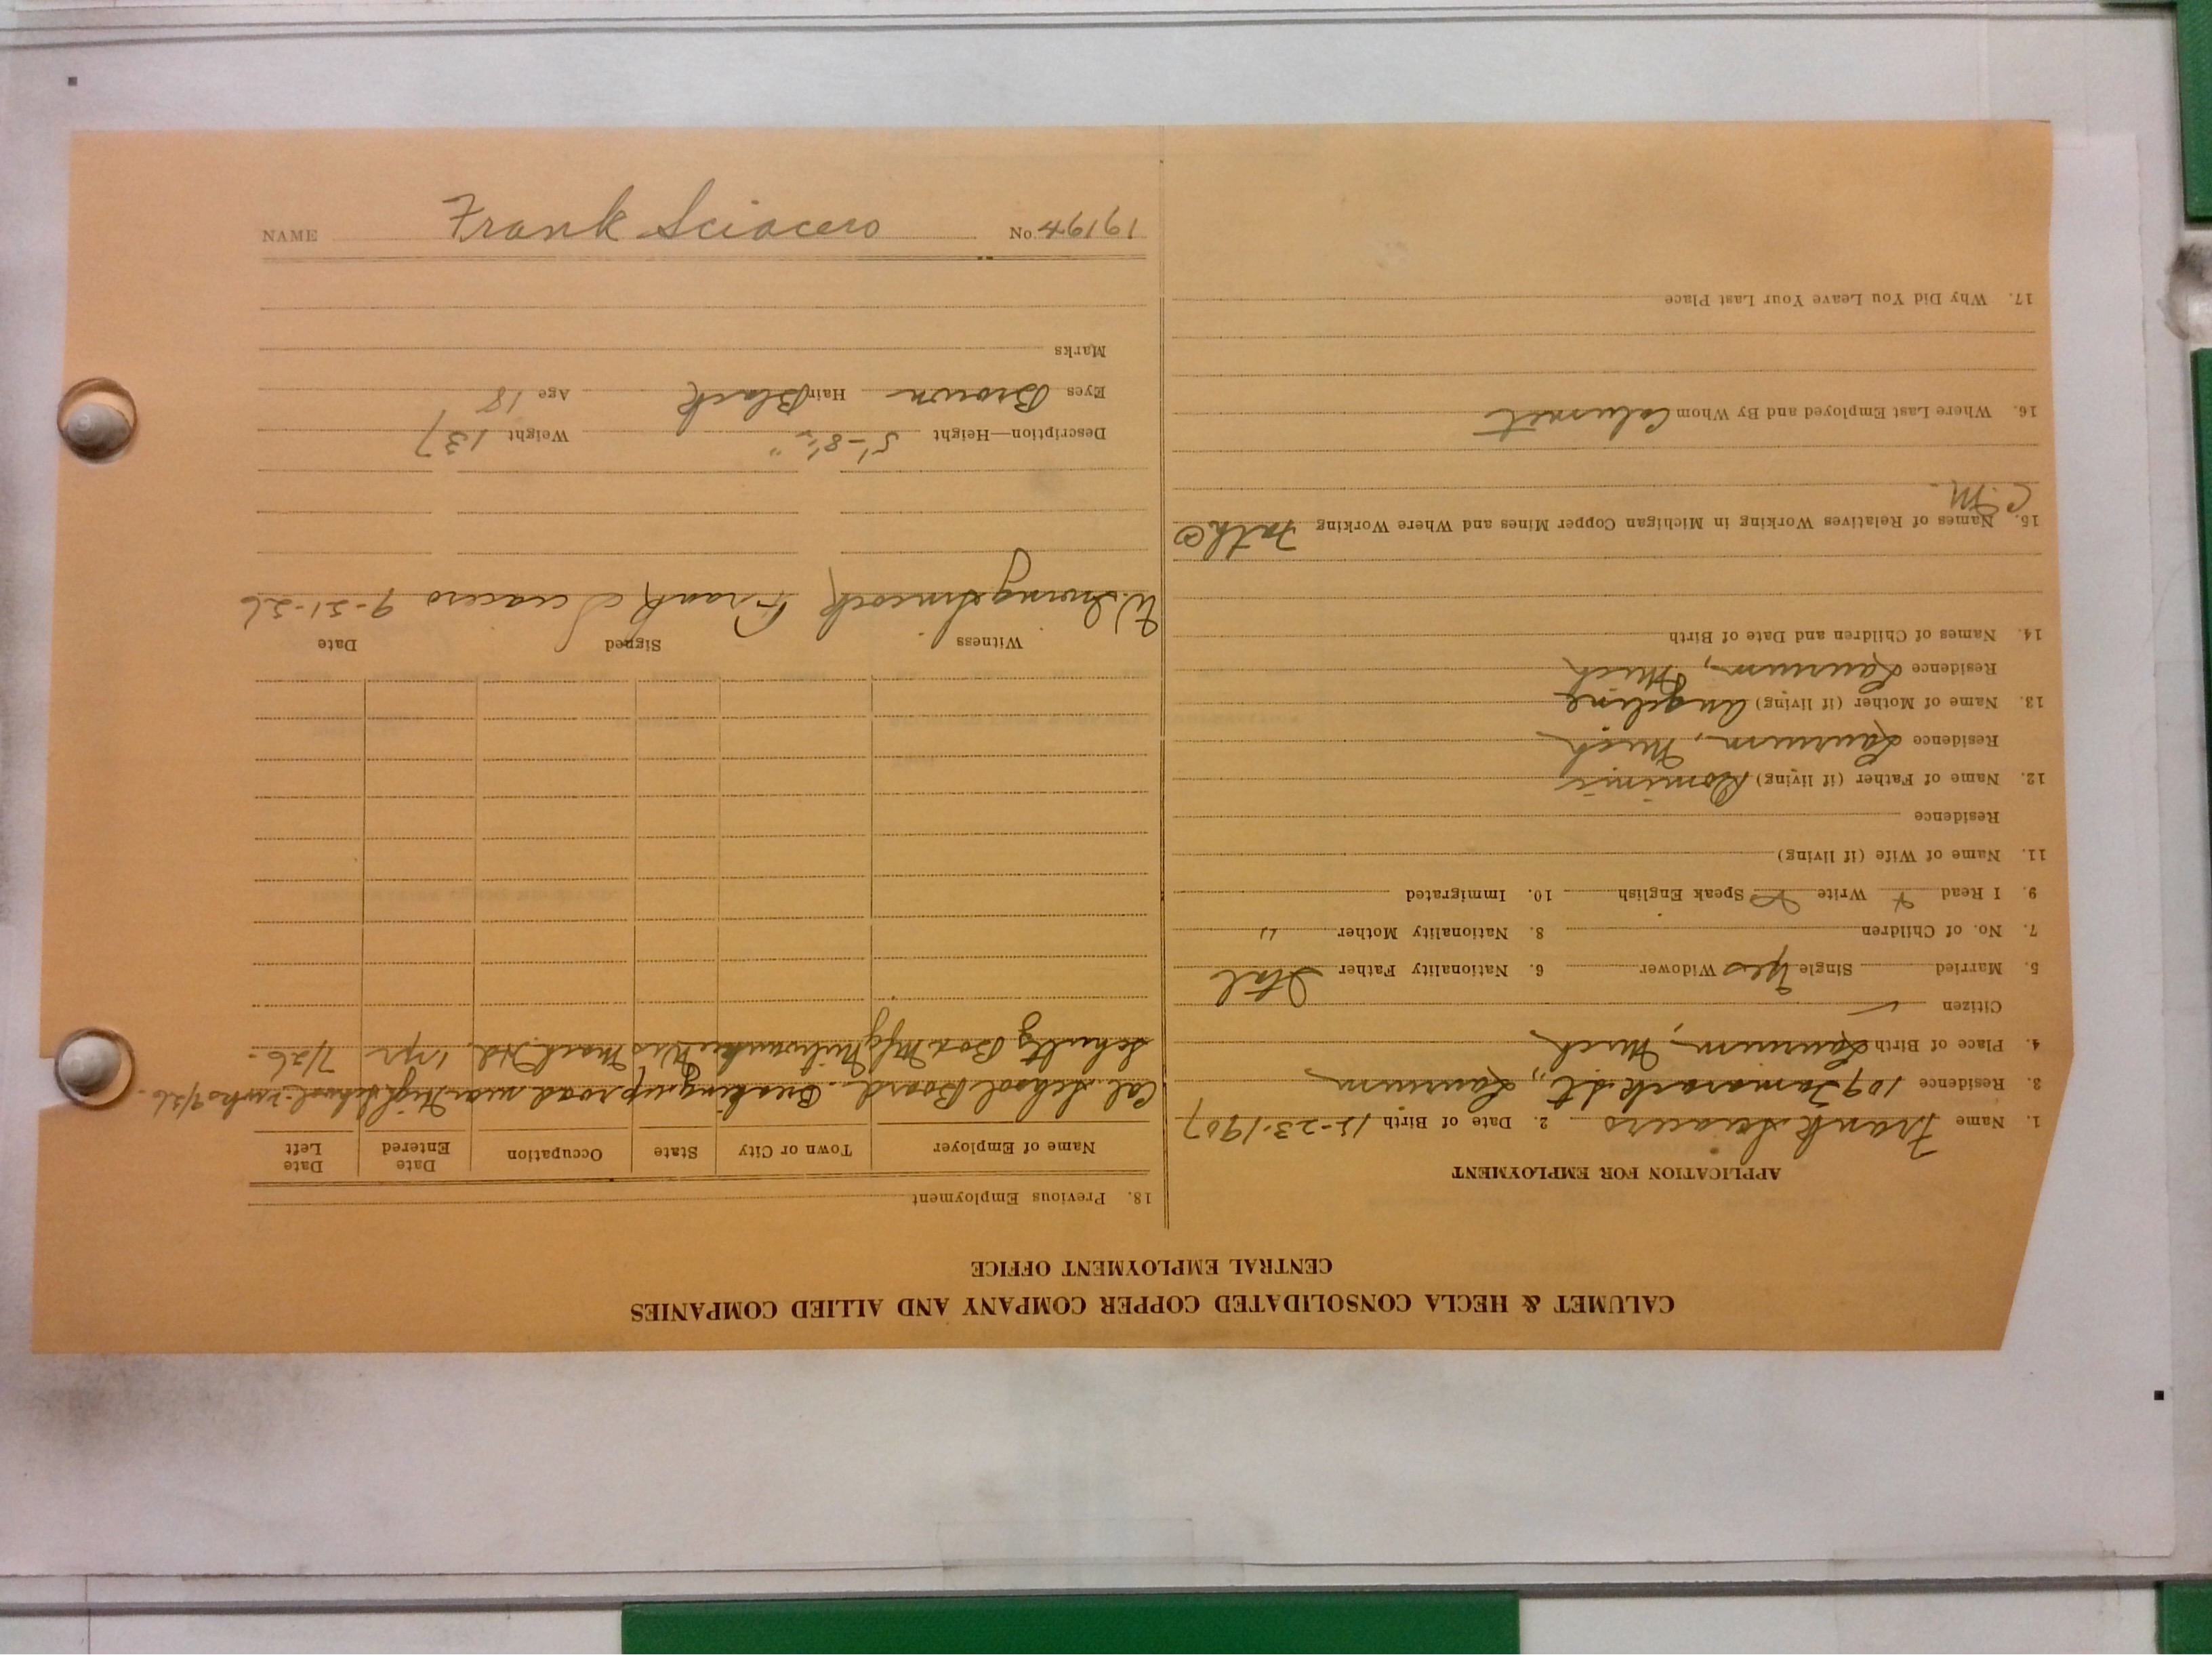 CALUMET & HECLA CONSOLIDATED COPPER COMPANY AND ALLIED COMPANIES
CENTRAL EMPLOYMENT OFFICE
APPLICATION FOR EMPLOYMENT
1. Name Frank Sciacero 2. Date of Birth 12-23-1907
3. Residence 109 Tamarack St., Laurium
4. Place of Birth Laurium, Mich
Citizen ✓
5. Married Single Yes Widower 6. Nationality Father Ital
7. No. of Children 8. Nationality Mother "
9. I Read Write Speak English 10. Immigrated
11. Name of Wife (if living)
Residence
12. Name of Father (if living) Dominic
Residence Laurium, Mich
13. Name of Mother (if living) Angeline
Residence Laurium, Mich
14. Names of Children and Date of Birth
15. Names of Relatives Working in Michigan Copper Mines and Where Working Fath
C.M.
16. Where Last Employed and By Whom Calumet
17. Why Did You Leave Your Last Place
18. Previous Employment
Name of Employer Town or City State Occupation Date Entered Date Left
Cal. School Board. Breaking up road near High School 9/26.
Schultz Box Mfg Milwaukee Wis Mach. Hd. 1 yr 7/26.
Witness Signed Date
W. Irving Frank Sciacero 9-21-26
Description—Height 5'-8½" Weight 137
Eyes Brown Hair Black Age 18
Marks
NAME Frank Sciacero No. 46161